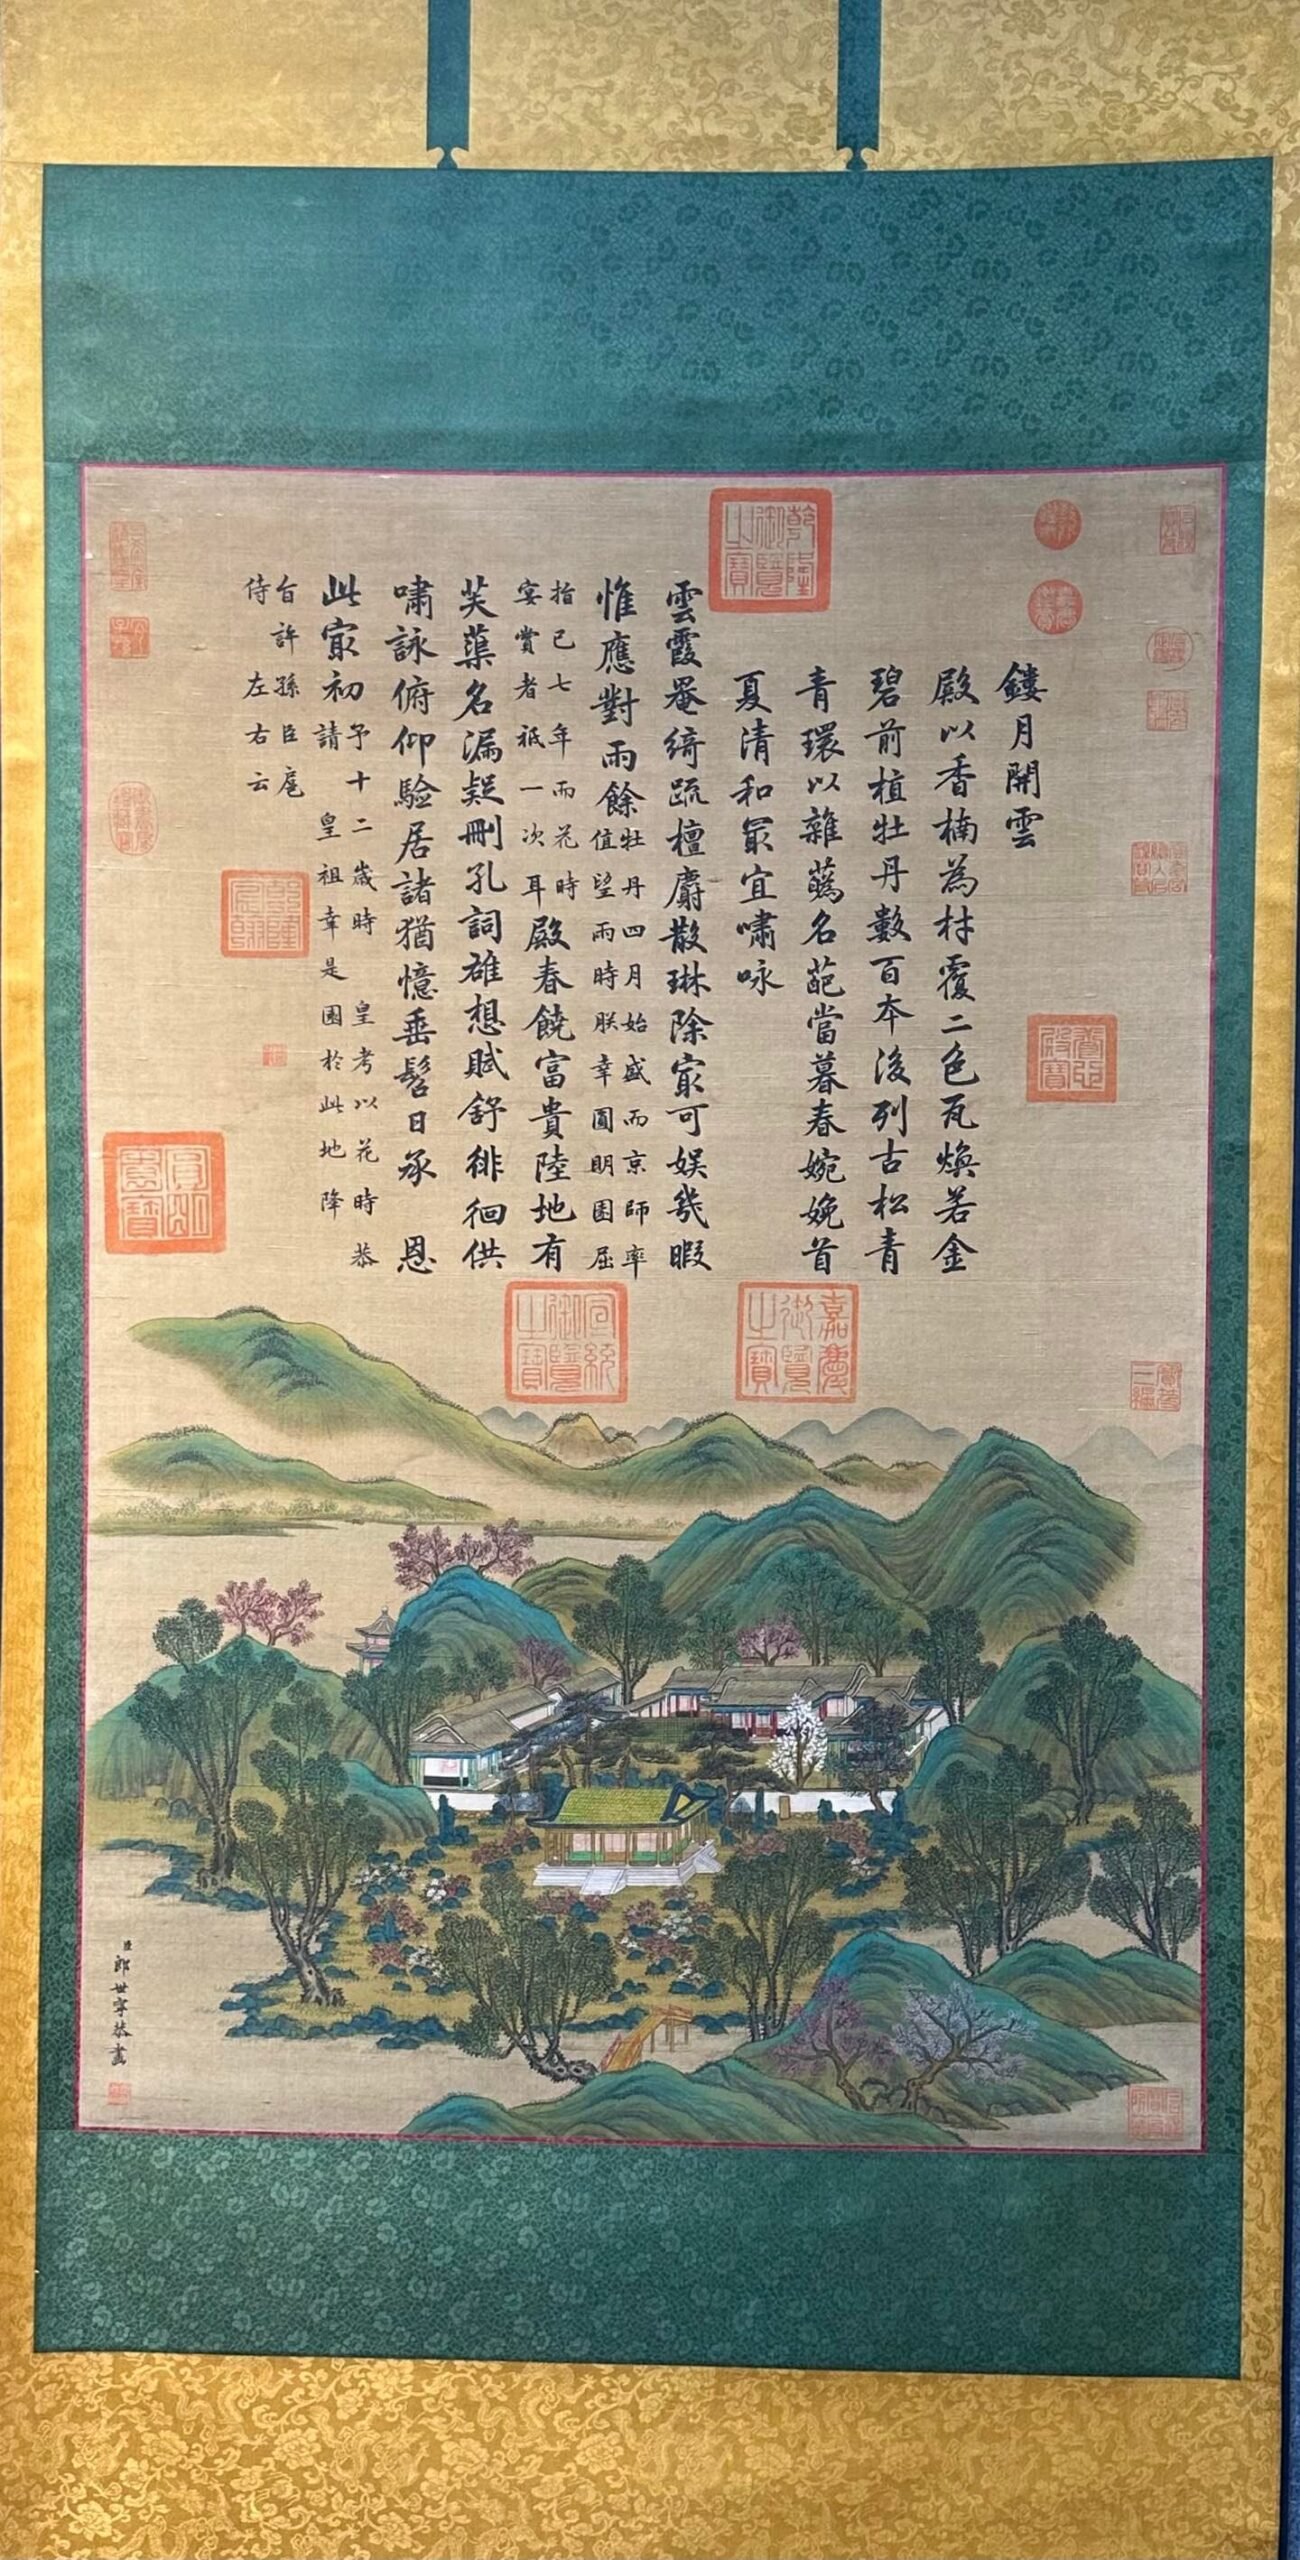 鏤月開雲
殿以香楠為材覆二色瓦煥若金
碧前植牡丹數百本後列古松青
青環以雜蘤名葩當暮春婉娩首
夏清和最宜嘯咏
雲霞罨綺疏檀麝散琳除最可娛幾暇
惟應對雨餘
牡丹四月始盛而京師率
值望雨時朕幸圓明園屈
指已七年而花時
宴賞者祇一次耳
殿春饒富貴陸地有
芙蕖名漏疑刪孔詞雄想賦舒徘徊供
嘯詠俯仰驗居諸猶憶垂髫日承恩
此最初
予十二歲時皇考以花時恭
請皇祖幸是園於此地降
旨許孫臣扈
侍左右云
乾隆御覽之寶
嘉慶御覽之寶
宣統御覽之寶
養心殿寶
乾隆宸翰
寶笈三編
臣郎世寧恭畫